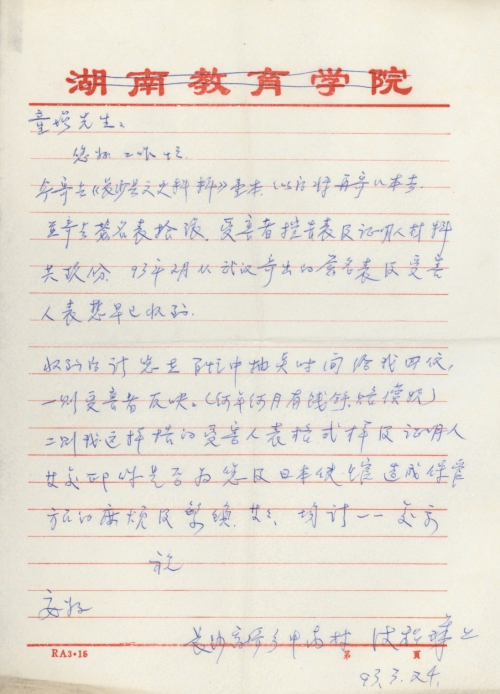 湖南教育学院
童增先生:
您好 工作忙
今寄去《长沙县文史料》壹本, 以后将再寄几本去.
并寄去签名表拾张, 受害者控告表及证明人材料
共 份. 93年2月从武汉寄出的签名表及受害
人表想早已收到.
收到后请您在百忙中抽点时间给我回信,
一则受害者反映。(何年何月有钱 赔偿呢)
二则我这样搞的受害人表格式样及证明人
材料是否为您及日本使馆造成保管
方面的麻烦及 均请一一 示
祝
安好
长沙 乡 村 上
RA3·16
第 页
93.3.24.